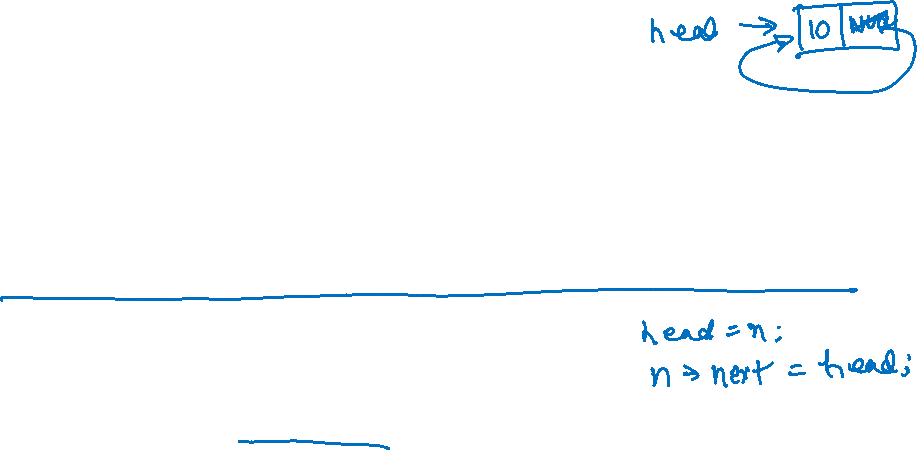 head → 10 NULL
head = n;
n → next = head;